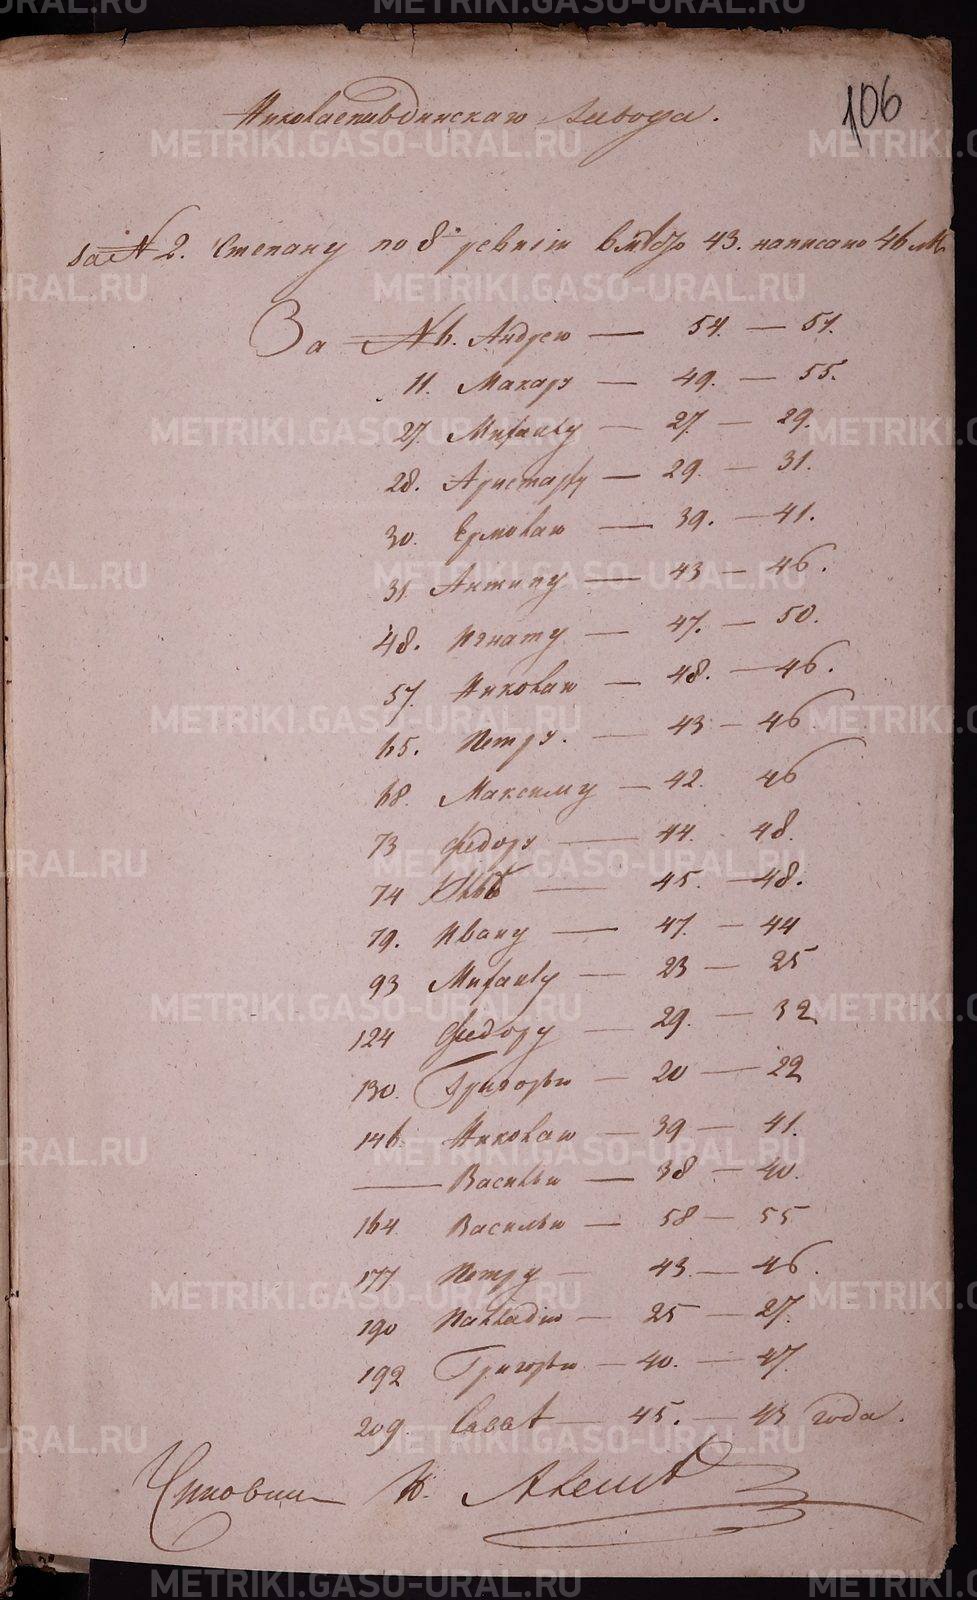 106
Николаепавдинскаго завода.
за № 2. Степану по 8й ревизіи вмѣсто 43. написано 46 лѣ
За № 6. Андрею — 54. — 51.
11. Макару — 49. — 55.
27. Михаилу — 27. — 29.
28. Аристарху — 29. — 31.
30. Ермолаю — 39. — 41.
31. Антипу — 43 — 46.
48. Игнату — 47. — 50.
57. Николаю — 48. — 46.
65. Петру. — 43 — 46
68. Максиму — 42. 46
73 Федору — 44. 48.
74 Ильѣ — 45. — 48.
79. Ивану — 47. — 44
93 Михаилу — 23 — 25
124 Федору — 29. — 32
130. Григорью — 20 — 22
146 Николаю — 39 — 41.
— Василью — 38 — 40.
164 Василью — 58 — 55
177 Петру — 43. — 46.
190 Палладию — 25 — 27.
192 Григорью — 40. — 47
209. Саввѣ — 45. — 43 года.
Чиновник
METRIKI.GASO-URAL.RU